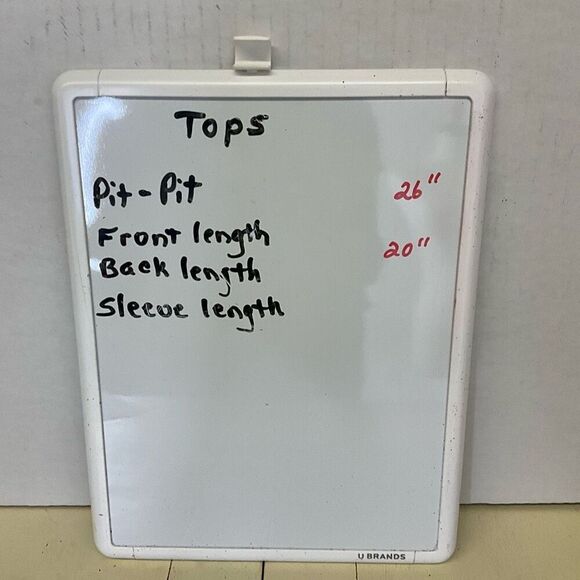 Tops
Pit - Pit 26"
Front length 20"
Back length
Sleeve length
U BRANDS